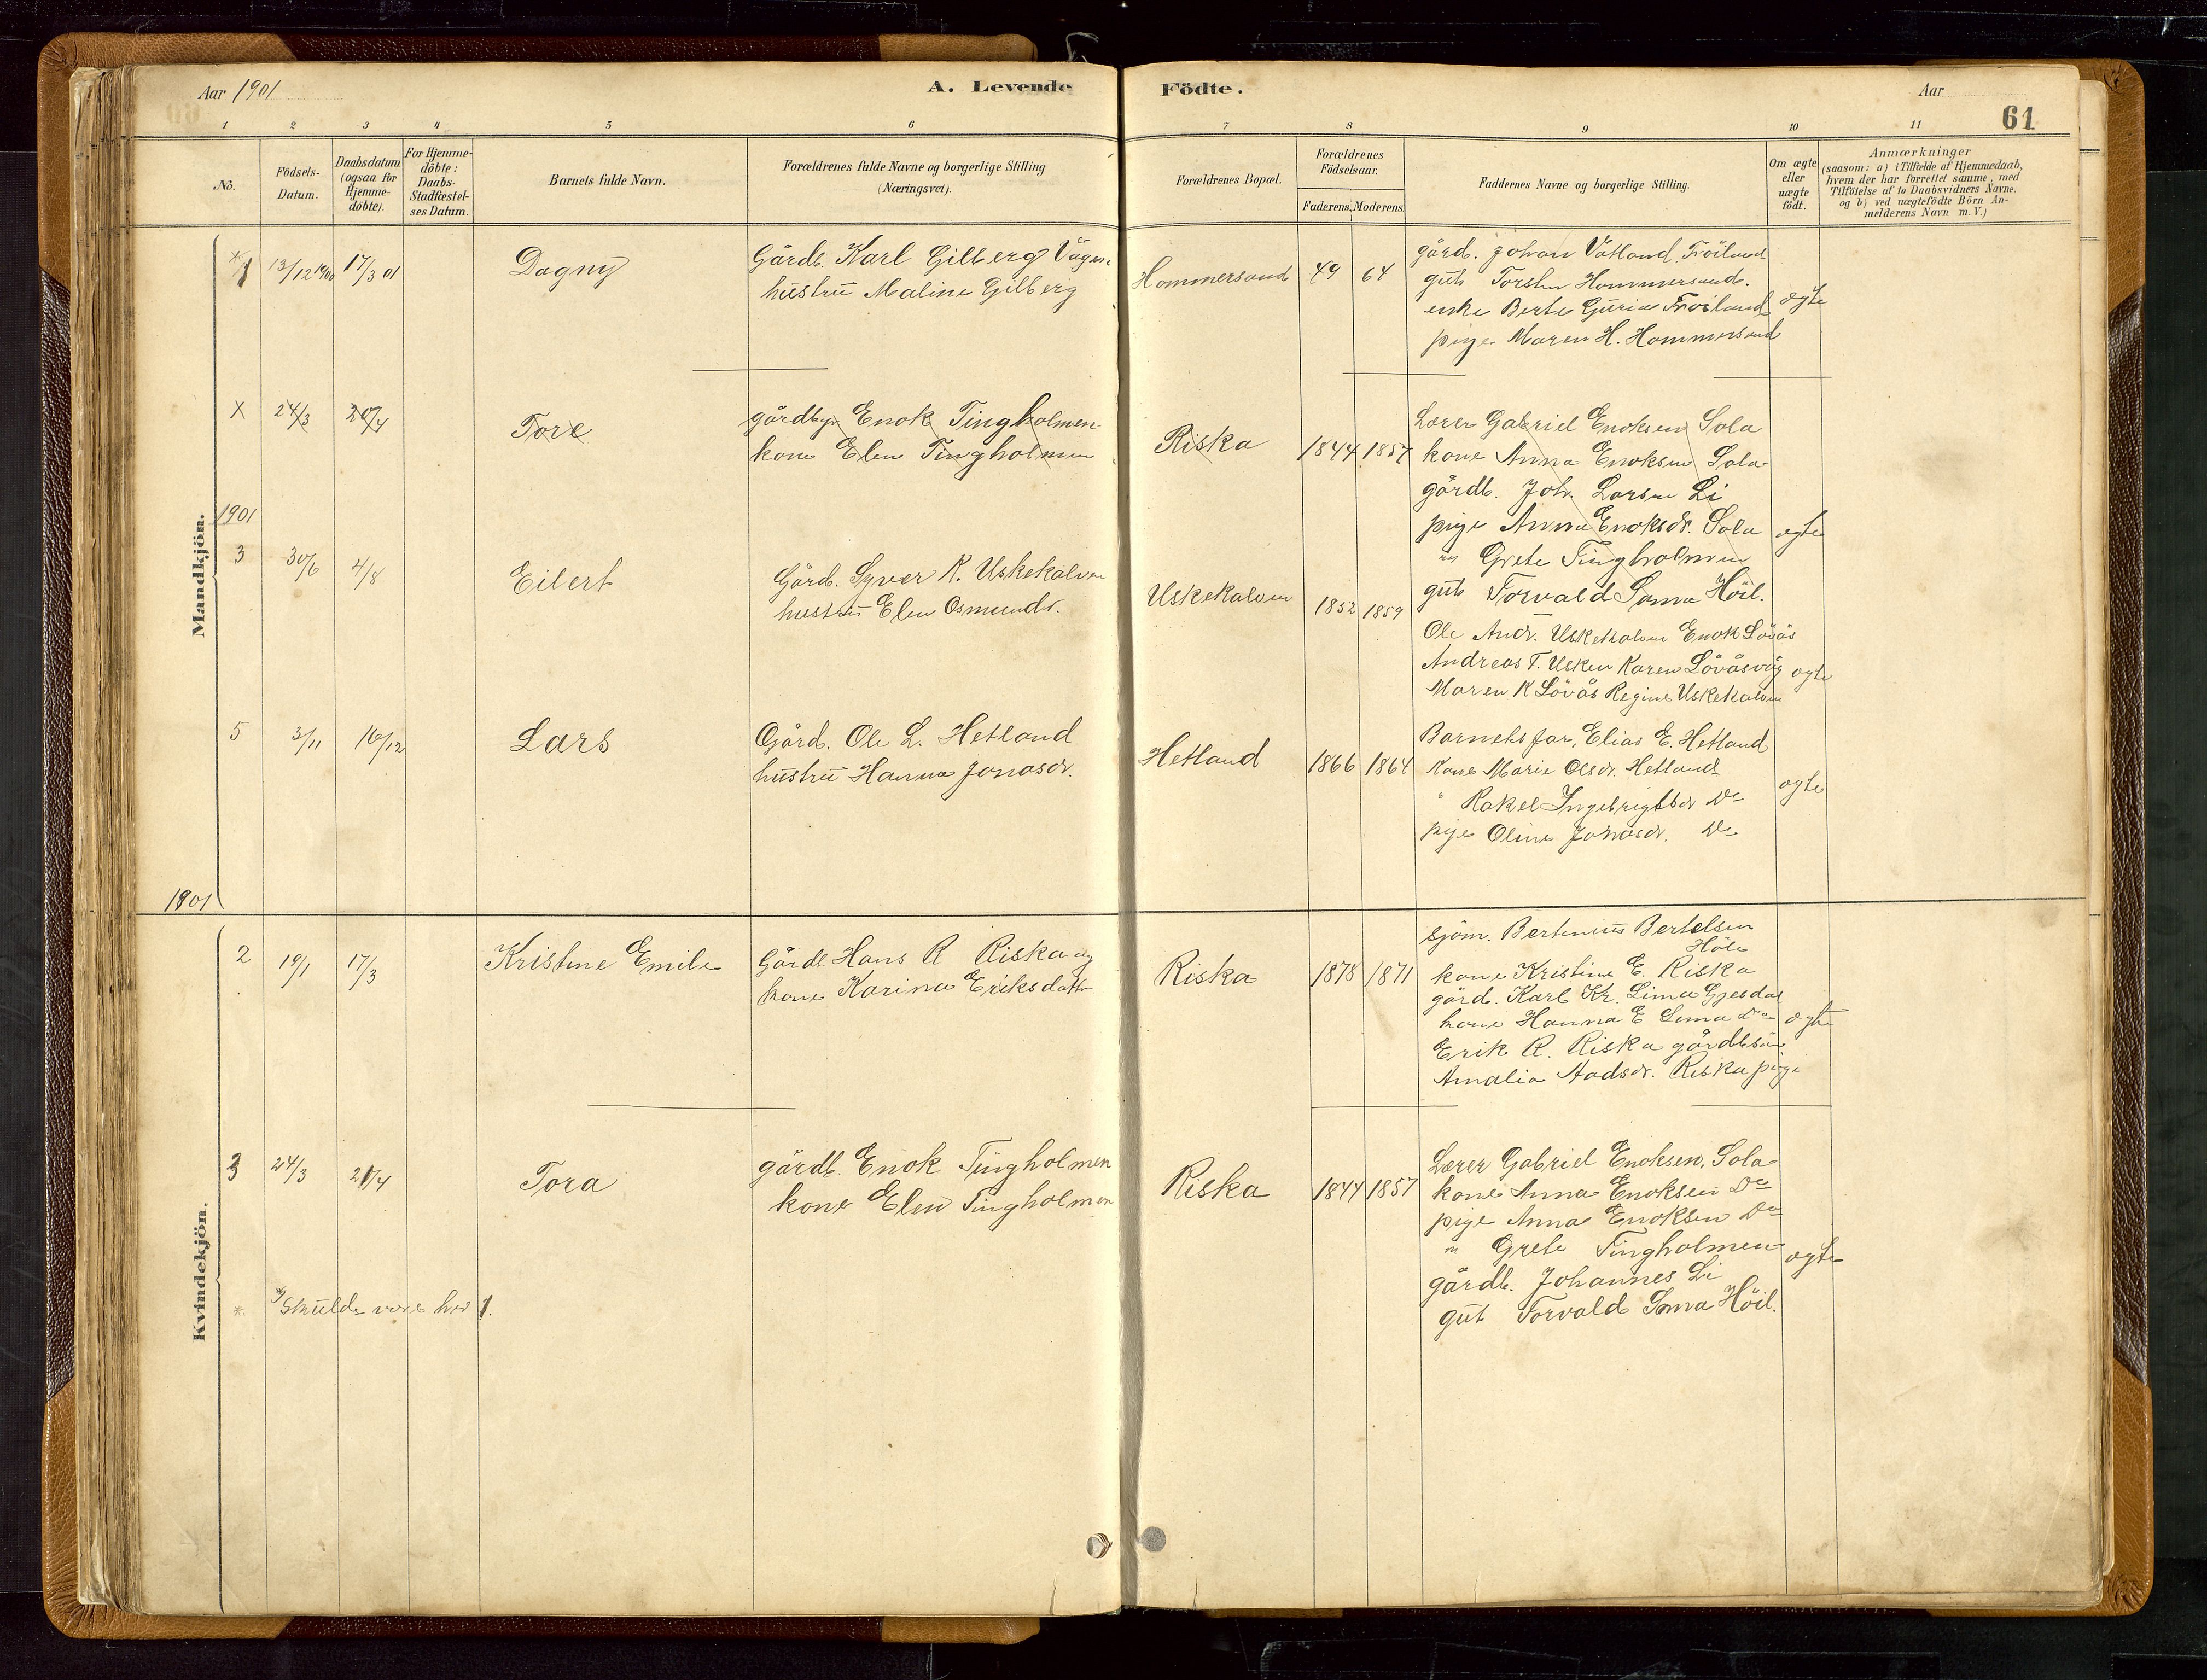 Aar 1901
A. Levende
Födte.
Aar
61
1 2 3 4 5 6 7 8 9 10 11
No.
Födsels-Datum.
Daabsdatum (ogsaa for Hjemme-döbte).
For Hjemme-döbte: Daabs-Stadfæstel-ses Datum.
Barnets fulde Navn.
Forældrenes fulde Navne og borgerlige Stilling (Næringsvei).
Forældrenes Bopæl.
Forældrenes Födselsaar.
Faderens. Moderens.
Faddernes Navne og borgerlige Stilling.
Om ægte eller uægte födt.
Anmærkninger
(saasom: a) i Tilfælde af Hjemmedaab,
hvem der har forrettet samme, med
Tilföielse af to Daabsvidners Navne.
og b) ved uægtefödte Börn An-
melderens Navn m. V.)
Mandkjön.
1 13/12 1900 17/3 01 Dagny
Gårdb. Karl Gilberg
hustru Maline Gilberg
Hommersand 49 64
gårdb. Johan Vatland, Fröiland
gut Torsten Hommersand.
enke Berte Guria Fröiland
pige Maren H. Hommersand
ægte
X 24/3 20/4 Tore
gårdbgr Enok Tingholmen
kone Elen Tingholmen
Riska 1844 1857
Lærer Gabriel Enoksen Sola
kone Anna Enoksen Sola
gårdb. Joh. Larsen Li
pige Anna Enoksdr. Sola
" Grete Tingholmen
gut Torvald Soma Höil.
ægte
1901
3 30/6 4/8 Eilert
Gårdb. Syver K. Uskekalven
hustru Elen Osmundr.
Uskekalven 1852 1859
Ole Andr. Uskekalven Enok Lövås
Andreas T. Usken Karen Lövåsvåg
Maren K Lövås Regine Uskekalven
ægte
5 3/11 16/12 Lars
Gårdb. Ole L. Hetland
hustru Hanna Jonasdr.
Hetland 1866 1864
Barnets far, Elias E. Hetland
Kone Marie Olsdr. Hetland
" Rakel Ingebrigtsdr Do
pige Oline Jonasdr. Do
ægte
1901
Kvindekjön.
2 19/1 17/3 Kristine Emile
Gårdb. Hans R Riska og
kone Karina Eriksdatter
Riska 1878 1871
sjöm. Bertinius Bertelsen
Höle
kone Kristine E. Riska
gårdb. Karl Kr. Lima Gjesdal
kone Hanna E Lima Do
Erik R. Riska gårdbsön
Amalia Aadsdr. Riska pige
ægte
3 24/3 21/4 Tora
gårdb. Enok Tingholmen
kone Elen Tingholmen
Riska 1844 1857
Lærer Gabriel Enoksen, Sola
kone Anna Enoksen Do
pige Anna Enoksen Do
" Grete Tingholmen
gårdb. Johannes Li
gut Torvald Soma Höil.
ægte
* Skulde være her 1.